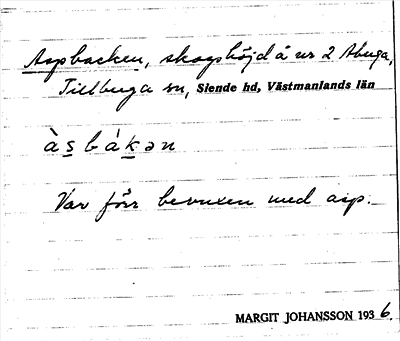 Aspbacken, skogshöjd å nr 2 Åbyga,
Tillbuga sn, Siende hd, Västmanlands län
àsbákən
Var förr bevuxen med asp.
MARGIT JOHANSSON 1936.